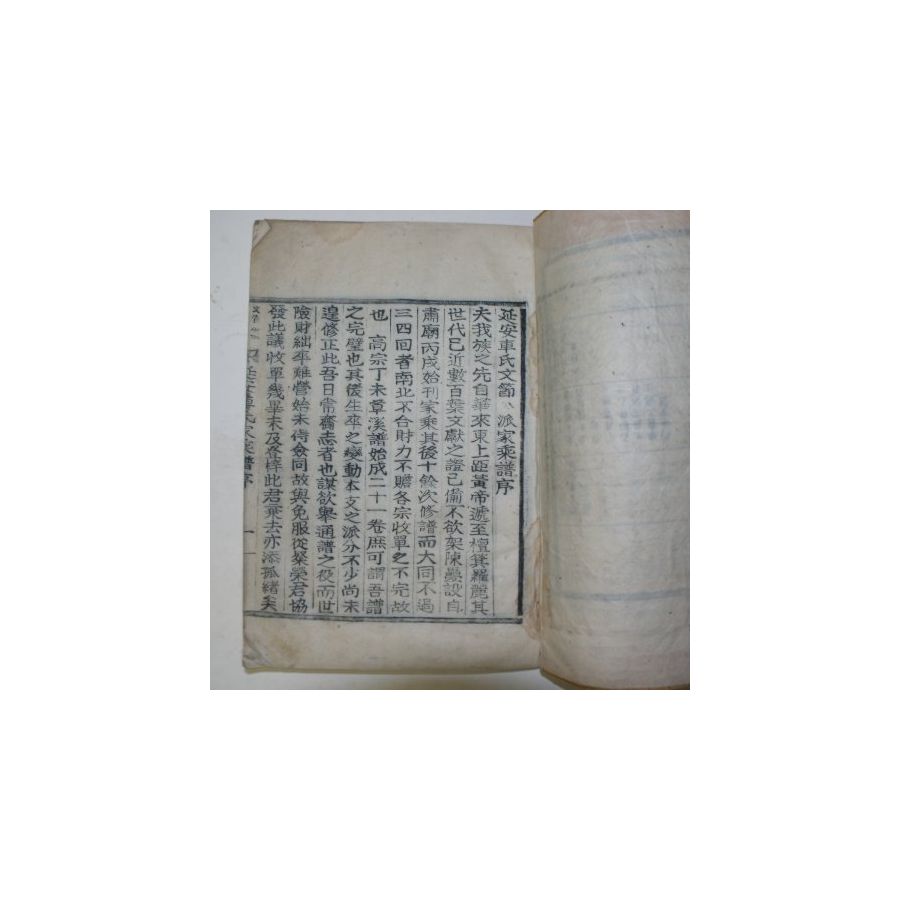 延安車氏文節公派家乘譜序
夫我族之先自華來東上距黃帝遞至檀箕羅麗其
世代已近數百葉文獻之證已備不欲架陳疊設自
肅廟丙戌始刊家乘其後十餘次修譜而大同不過
三四回者南北不合財力不贍各宗收單之不完故
也 高宗丁未草溪譜始成二十一卷庶可謂吾譜
之完璧也其後生卒之變動本支之派分不少尚未
遑修正此吾日常齋志者也謀欲舉通譜之役而世
險財絀卒難營始未侍僉同故與免服從燦榮君協
發此議收單幾畢未及登梓此君棄去亦添孤緒矣
譜序
一